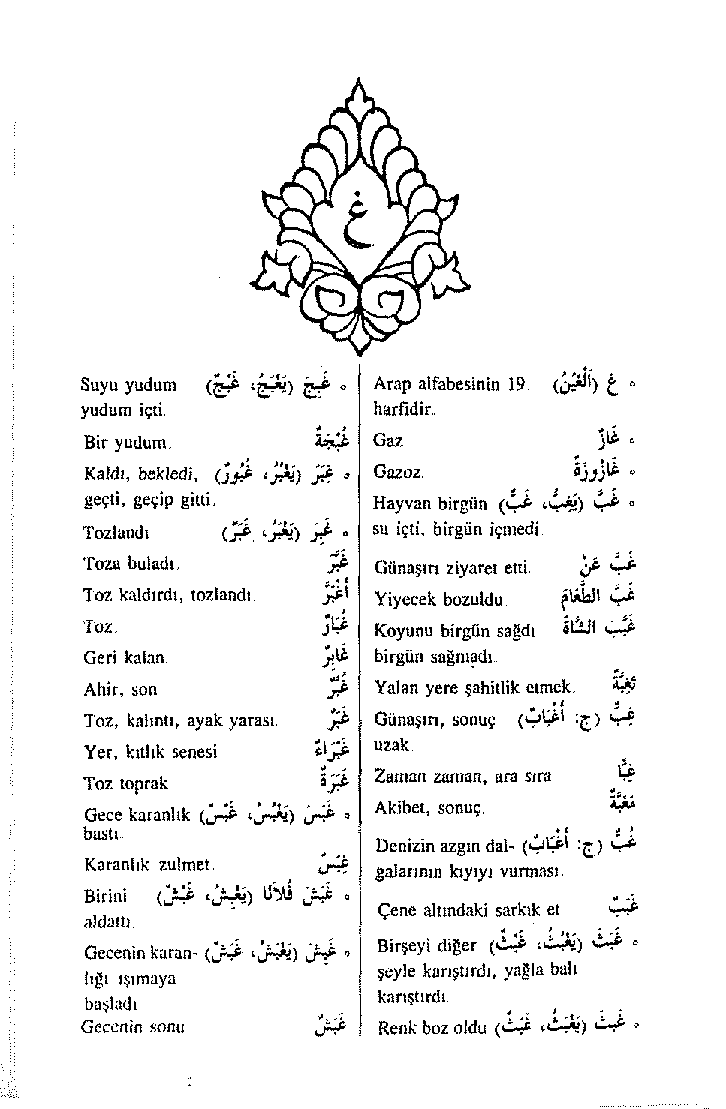 غ
° غ (اَلْغَيْنُ) Arap alfabesinin 19.
harfidir.
° غَازٌ Gaz
° غَازُوزَةٌ Gazoz.
° غَبَّ (يَغِبُّ، غَبّ) Hayvan birgün
su içti, birgün içmedi.
غَبَّ عَنْ Günaşırı ziyaret etti.
غَبَّ الطَّعَامُ Yiyecek bozuldu.
غَبَّبَ الشَّاةَ Koyunu birgün sağdı
birgün sağmadı.
تَغِبَّةٌ Yalan yere şahitlik etmek.
غِبٌّ (ج: أَغْبَابٌ) Günaşırı, sonuç
uzak.
غِبًّا Zaman zaman, ara sıra
مَغَبَّةٌ Akibet, sonuç.
غُبٌّ (ج: أَغْبَابٌ) Denizin azgın dal-
galarının kıyıyı vurması.
غَبَبٌ Çene altındaki sarkık et
° غَبَثَ (يَغْبُثُ، غَبْثٌ) Birşeyi diğer
şeyle karıştırdı, yağla balı
karıştırdı.
° غَبِثَ (يَغْبَثُ، غَبَثٌ) Renk boz oldu
° غَبِجَ (يَغْبَجُ، غَبَجٌ) Suyu yudum
yudum içti.
غُبْجَةٌ Bir yudum.
° غَبَرَ (يَغْبُرُ، غُبُورٌ) Kaldı, bekledi,
geçti, geçip gitti.
° غَبِرَ (يَغْبَرُ، غَبَرٌ) Tozlandı
غَبَّرَ Toza buladı.
أَغْبَرَ Toz kaldırdı, tozlandı.
غُبَارٌ Toz.
غَابِرٌ Geri kalan.
غُبَّرٌ Ahir, son
غُبْرٌ Toz, kalıntı, ayak yarası.
غَبْرَاءُ Yer, kıtlık senesi
غَبَرَةٌ Toz toprak
° غَبَسَ (يَغْبُسُ، غَبْسٌ) Gece karanlık
bastı.
غَبَسٌ Karanlık zulmet.
° غَبَشَ فُلَانًا (يَغْبِشُ، غَبْشٌ) Birini
aldattı.
° غَبِشَ (يَغْبَشُ، غَبَشٌ) Gecenin karan-
lığı ışımaya
başladı
غَبَشٌ Gecenin sonu